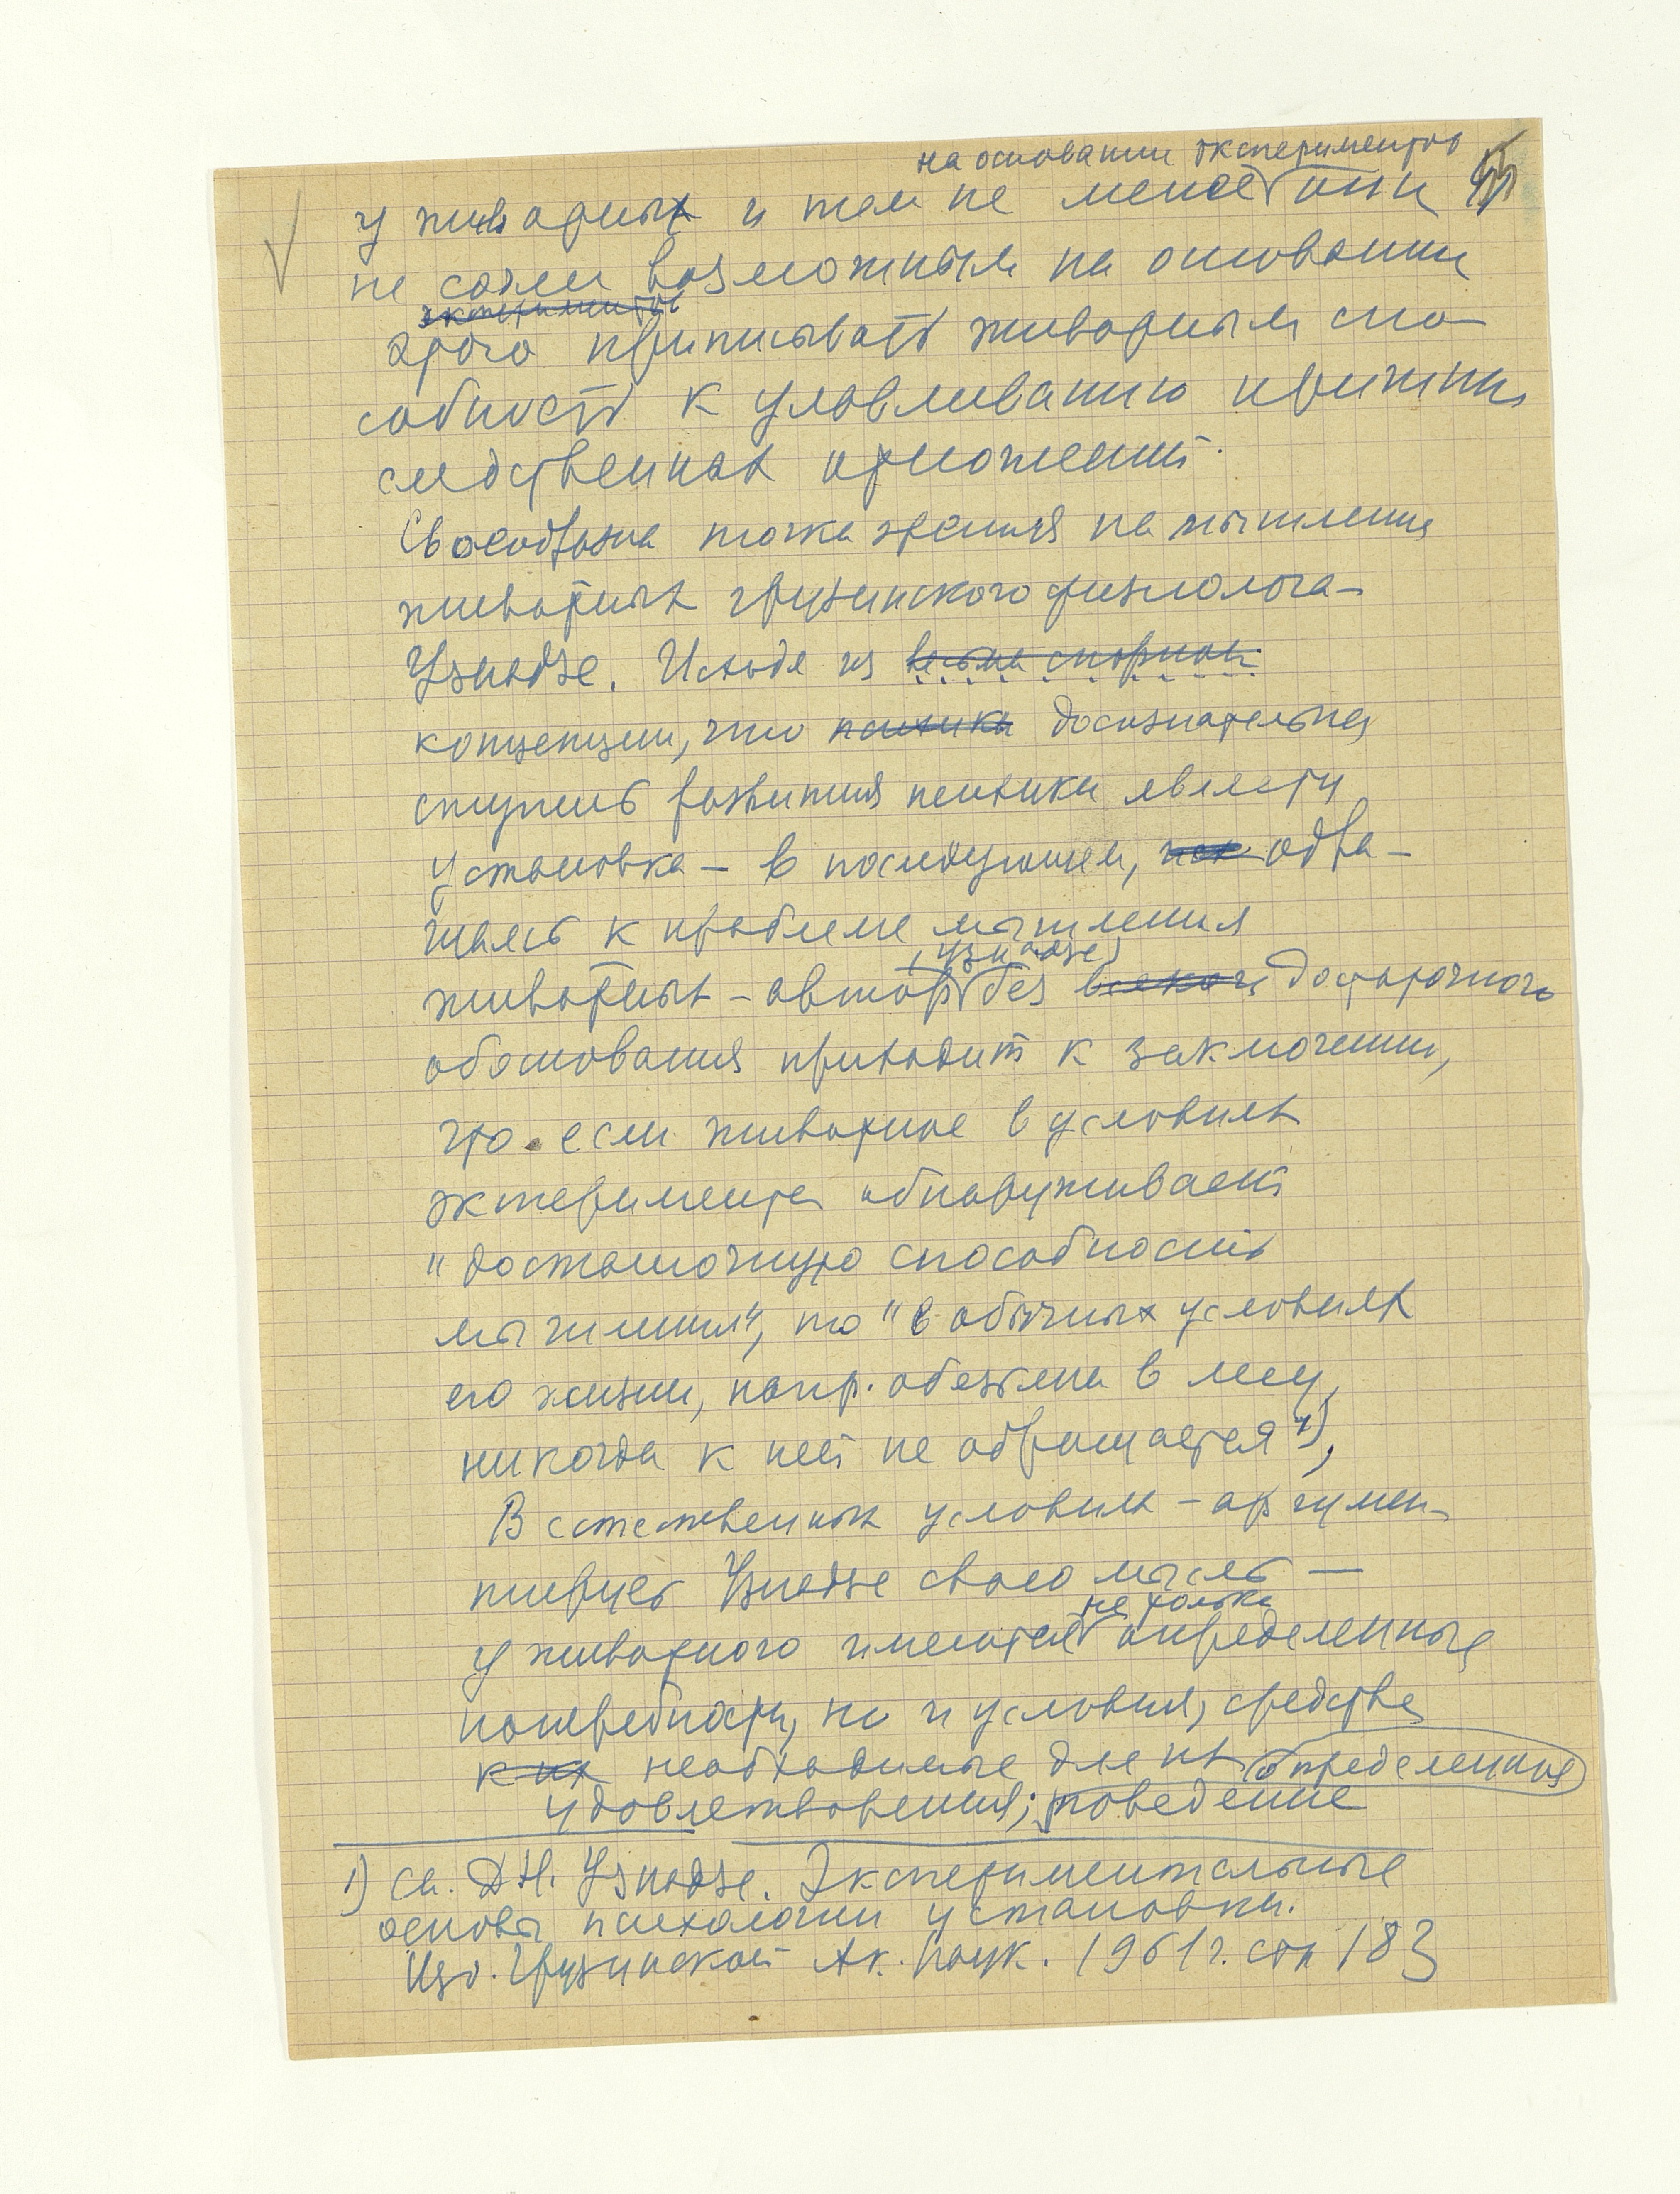 на основании экспериментов
у животных и тем не менее они
не сочли возможным на основании
экспериментов
этого приписывать животным спо-
собность к улавливанию причинно
следственных отношений.
Своеобразна точка зрения на мышление
животных грузинского физиолога-
Узнадзе. Исходя из весьма спорной
концепции, что психики досознательная
ступень развития психики является
установка – в последующем, как обра-
щаясь к проблеме мышления
(Узнадзе)
животных – автор без всякого достаточного
обоснования приходит к заключению,
что если животное в условиях
эксперимента обнаруживает
"достаточную способность
мышления", то "в обычных условиях
его жизни, напр. обезьяна в лесу,
никогда к ней не обращается 1),
В естественных условиях – аргумен-
тирует Узнадзе свою мысль –
не только
у животного имеются определенные
потребности, но и условия, средства
к их необходимые для их определенная
удовлетворения; поведение
1) См. Д.Н. Узнадзе. Экспериментальные
основы психологии установки.
Изд. Грузинской Ак. Наук. 1961 г. стр 183